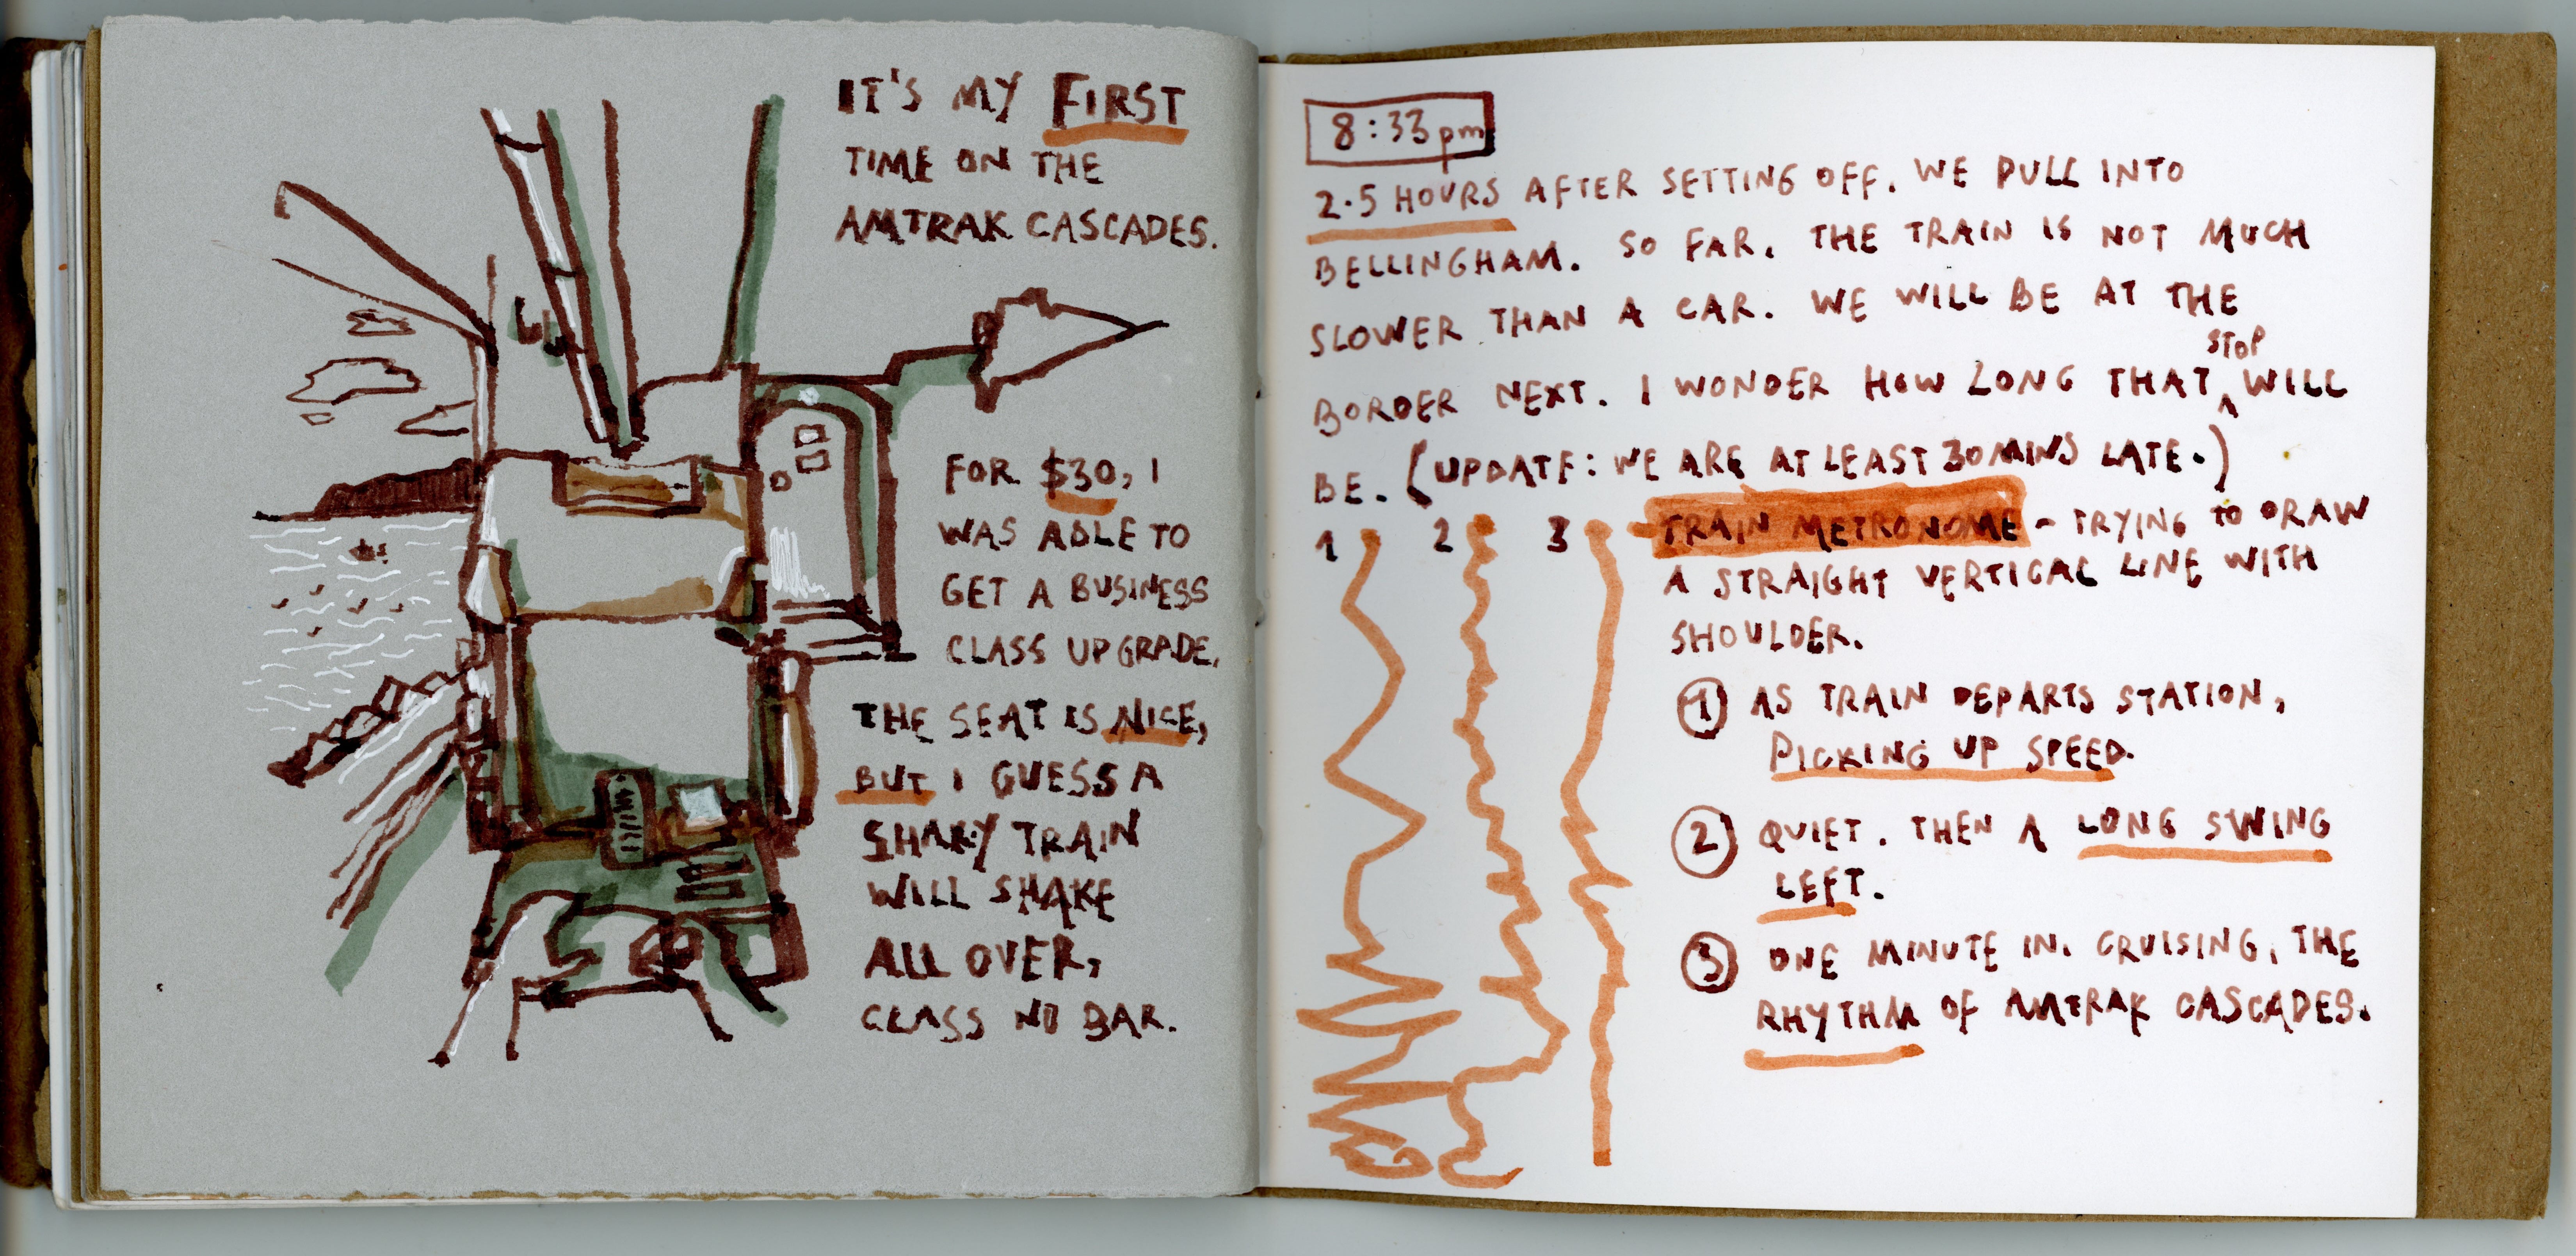 IT'S MY FIRST
TIME ON THE
AMTRAK CASCADES.
FOR $30, I
WAS ABLE TO
GET A BUSINESS
CLASS UPGRADE.
THE SEAT IS NICE,
BUT I GUESS A
SHAKY TRAIN
WILL SHAKE
ALL OVER,
CLASS NO BAR.
8:33pm
2.5 HOURS AFTER SETTING OFF. WE PULL INTO
BELLINGHAM. SO FAR, THE TRAIN IS NOT MUCH
SLOWER THAN A CAR. WE WILL BE AT THE
BORDER NEXT. I WONDER HOW LONG THAT STOP WILL
BE. (UPDATE: WE ARE AT LEAST 30 MINS LATE.)
1 2 3 TRAIN METRONOME - TRYING TO DRAW
A STRAIGHT VERTICAL LINE WITH
SHOULDER.
1 AS TRAIN DEPARTS STATION,
PICKING UP SPEED.
2 QUIET. THEN A LONG SWING
LEFT.
3 ONE MINUTE IN. CRUISING, THE
RHYTHM OF AMTRAK CASCADES.